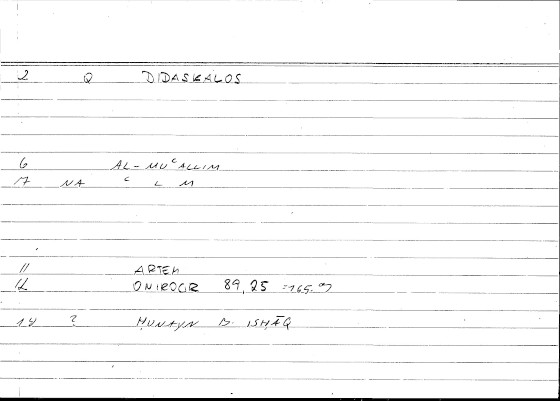 2 Q DIDASKALOS
6 AL-MUᶜALLIM
17 NA ᶜ L M
11 ARTEM
12 ONIROCR 89,25 =165.9
14 ? ḤUNAYN B. ISḤĀQ